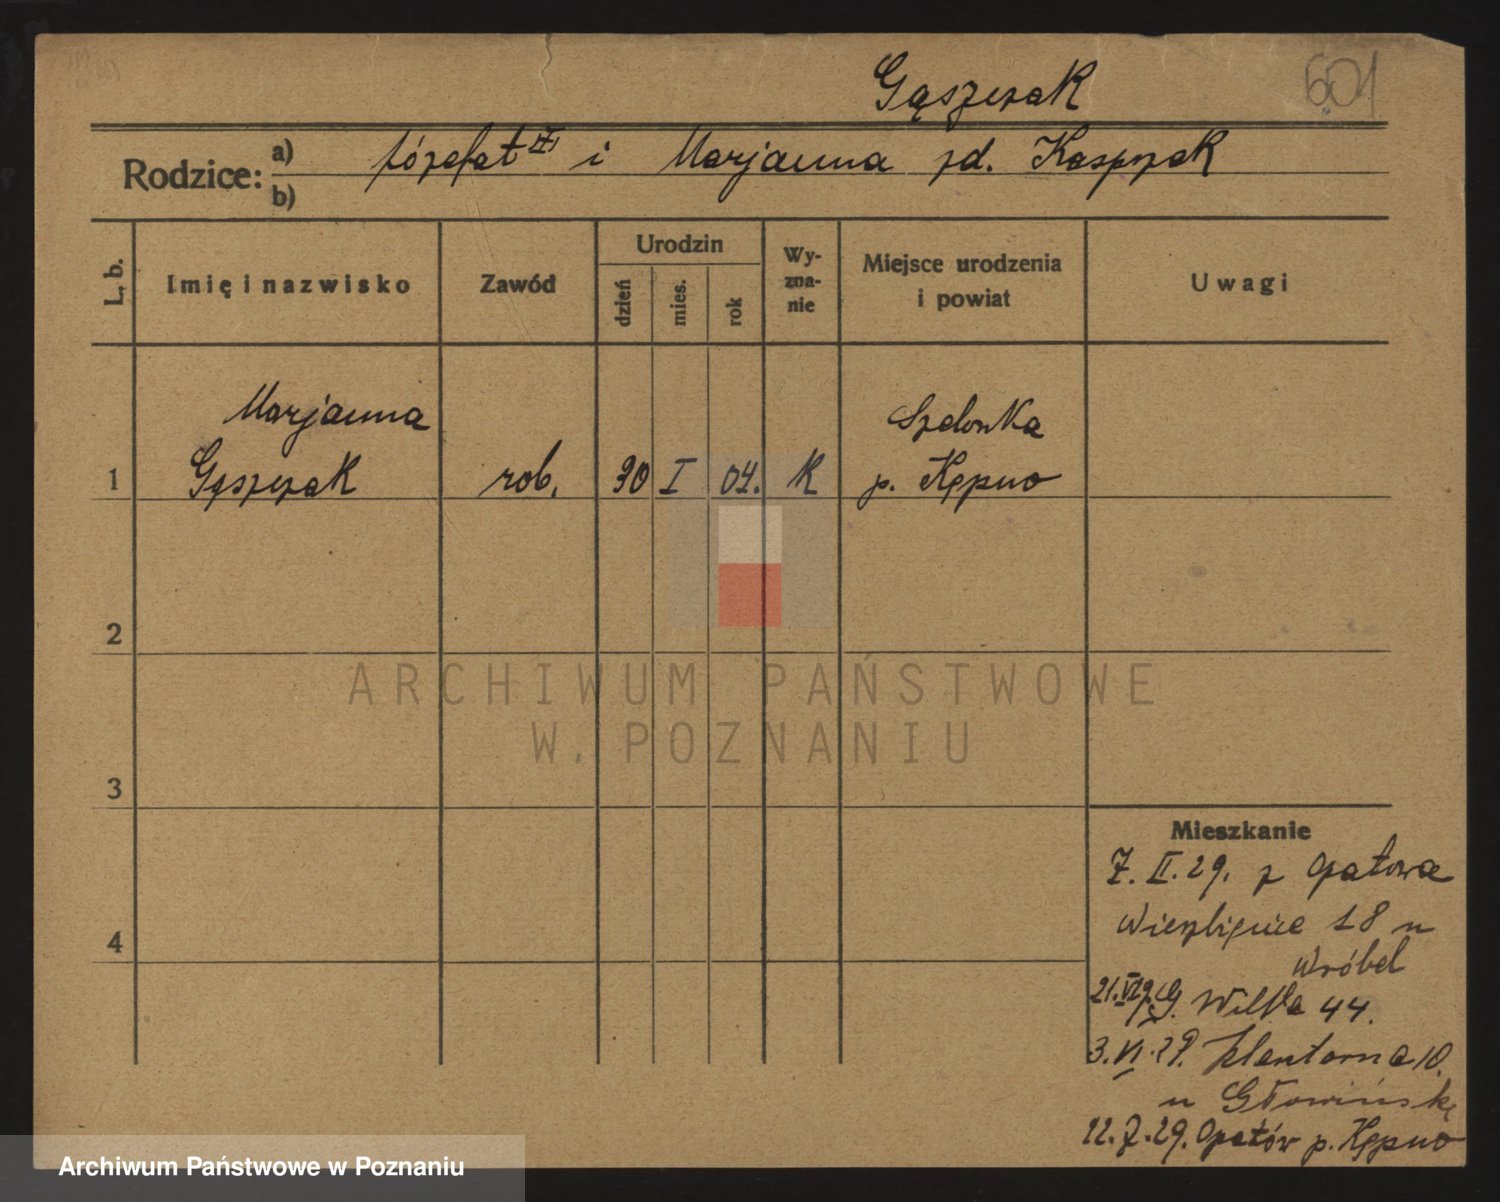 Gąszczak
601
Rodzice: a) Józefat II i Marjanna zd. Kasprzak
b)
L. b. Imię i nazwisko Zawód Urodzin dzień mies. rok Wyznanie Miejsce urodzenia i powiat Uwagi
Marjanna Szklonka
1 Gąszczak rob. 30 I 04. K p. Kępno
2
3
4
ARCHIWUM PAŃSTWOWE
W POZNANIU
Mieszkanie
7. II. 29. z Opatowa
18 u
Wróbel
G. Wilda 44.
3. VI. 29.
u
12. 7. 29. Opatów p. Kępno
Archiwum Państwowe w Poznaniu